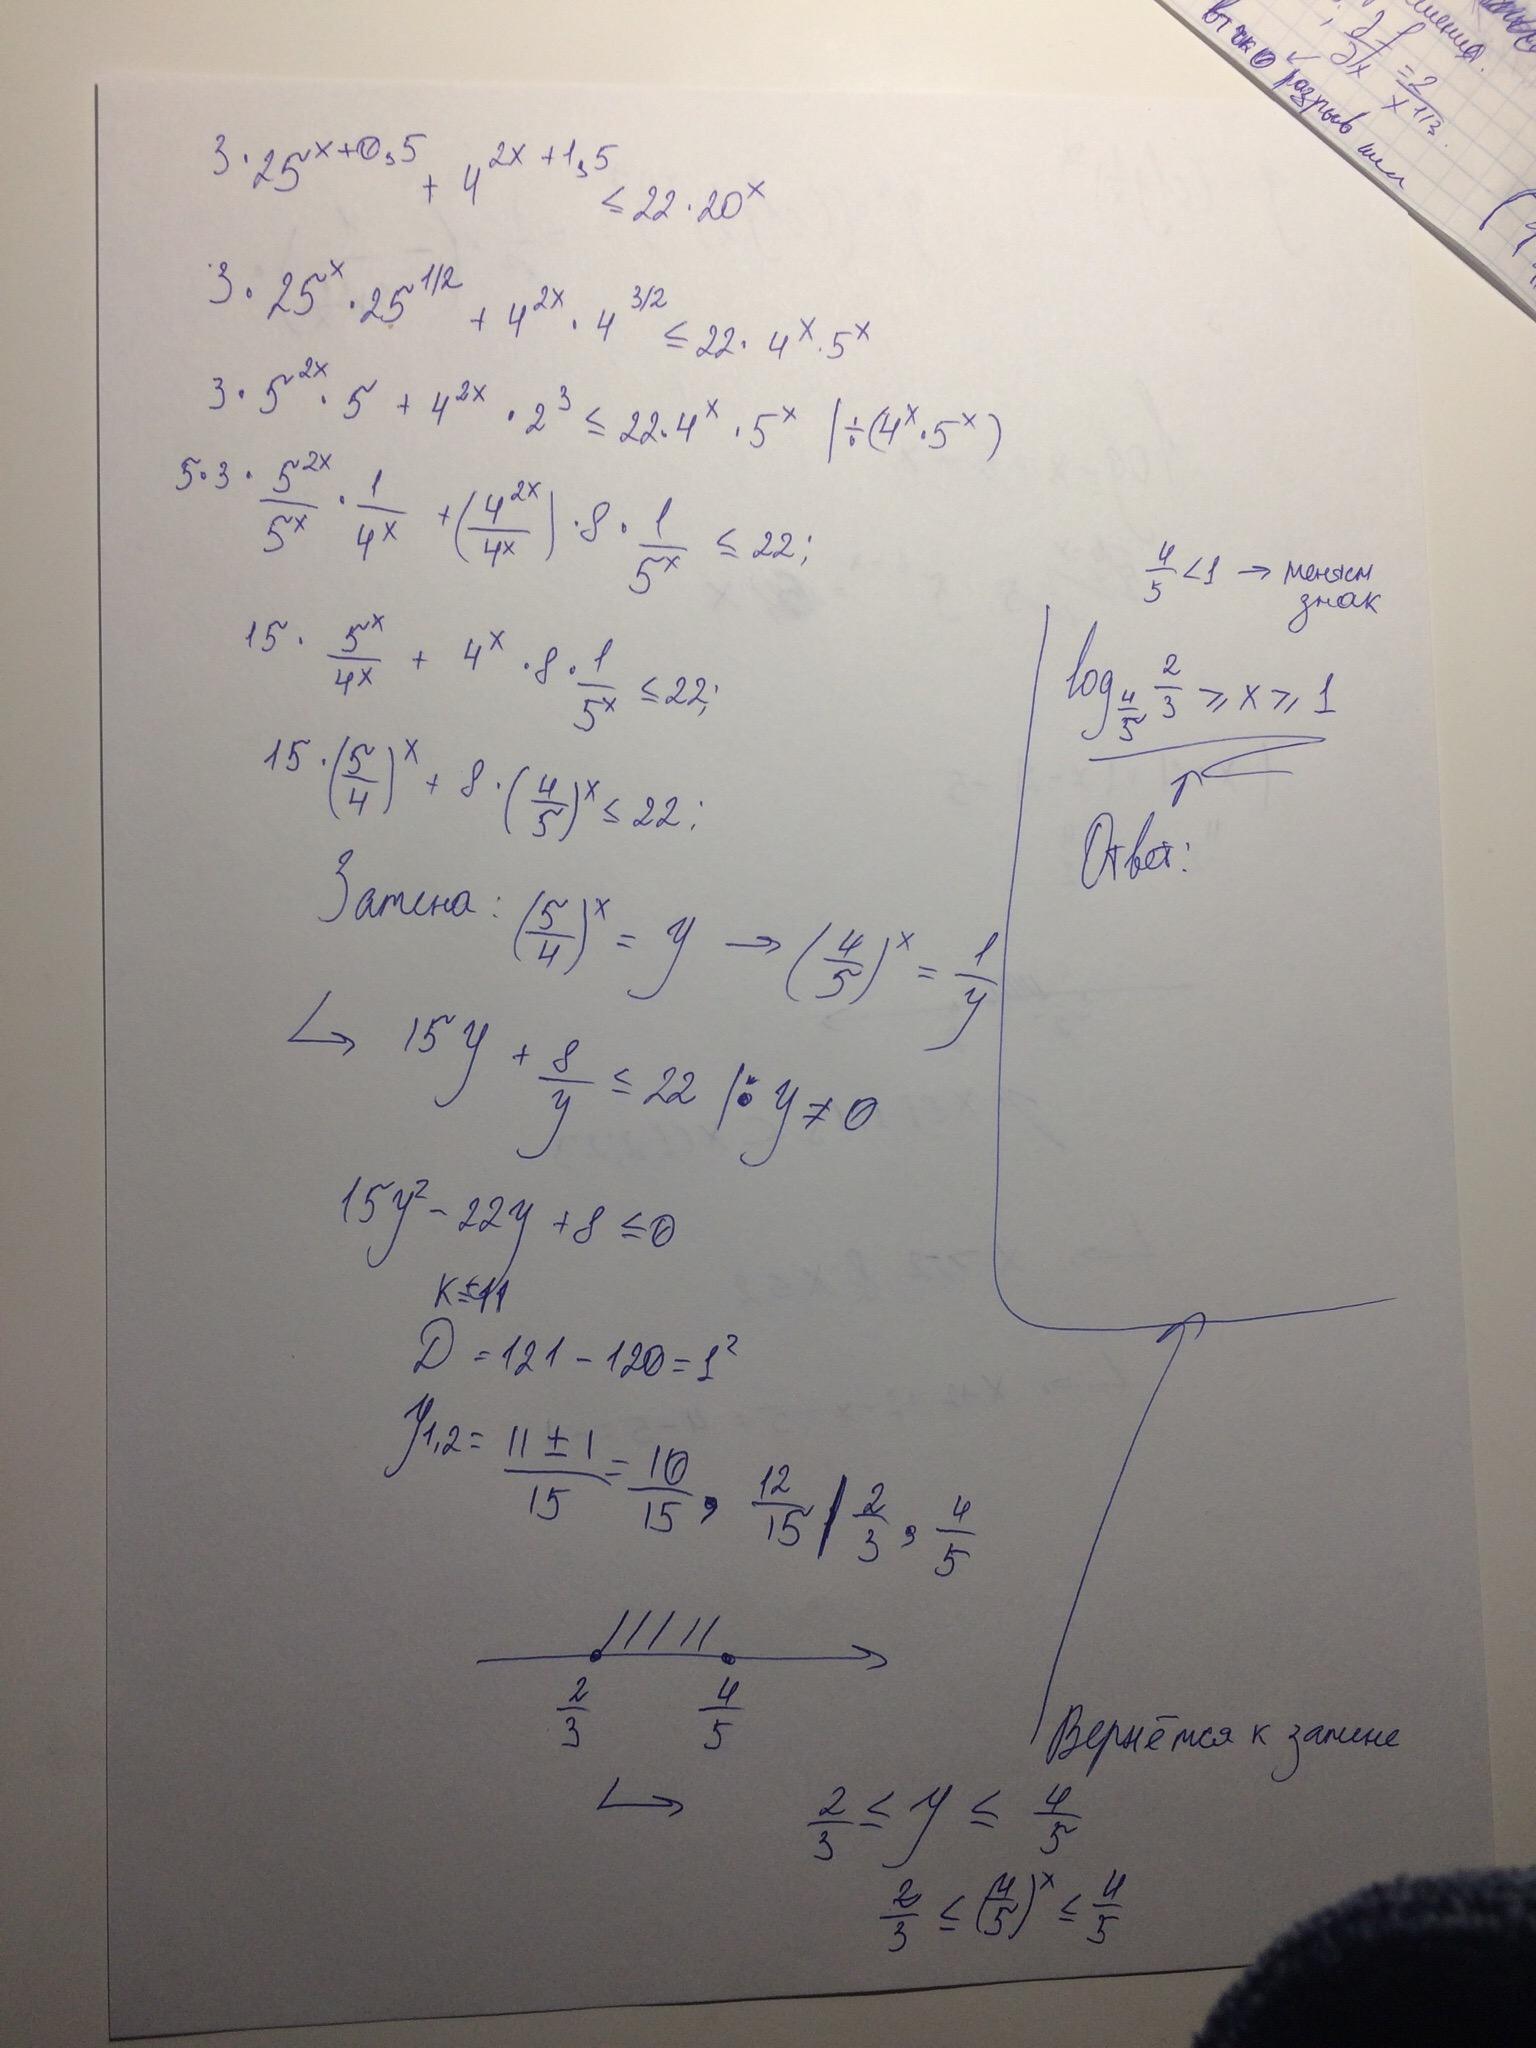 3·25^(x+0,5) + 4^(2x+1,5) ≤ 22·20^x
3·25^x·25^(1/2) + 4^(2x)·4^(3/2) ≤ 22·4^x·5^x
3·5^(2x)·5 + 4^(2x)·2^3 ≤ 22·4^x·5^x |÷(4^x·5^x)
5·3·5^(2x)/5^x·1/4^x + (4^(2x)/4^x)·8·1/5^x ≤ 22;
15·5^x/4^x + 4^x·8·1/5^x ≤ 22;
15·(5/4)^x + 8·(4/5)^x ≤ 22;
Замена: (5/4)^x = y → (4/5)^x = 1/y
↳ 15y + 8/y ≤ 22 |: y ≠ 0
15y² - 22y + 8 ≤ 0
K = 11
D = 121 - 120 = 1²
y1,2 = (11 ± 1)/15 = 10/15, 12/15 / 2/3, 4/5
2/3 4/5
Вернёмся к замене
↳ 2/3 ≤ y ≤ 4/5
2/3 ≤ (4/5)^x ≤ 4/5
4/5 < 1 → меняем
знак
log_(4/5) 2/3 ≥ x ≥ 1
Ответ:
∂f/∂x = 2/x^(1/3)
в т чк 0 разрыв